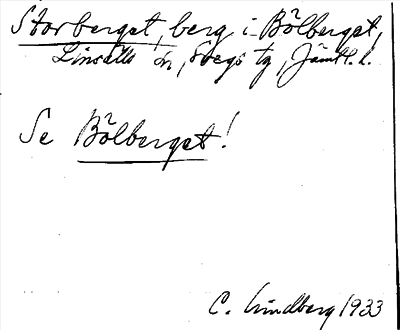 Storberget, berg i Bölberget,
Linsells sn, Svegs tg, Jämtl. l.
Se Bölberget!
C. Lindberg 1933